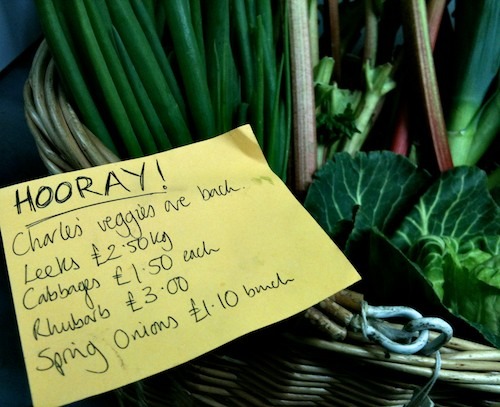 HOORAY!
Charles' veggies are back.
Leeks £2.50kg
Cabbages £1.50 each
Rhubarb £3.00
Spring Onions £1.10 bunch